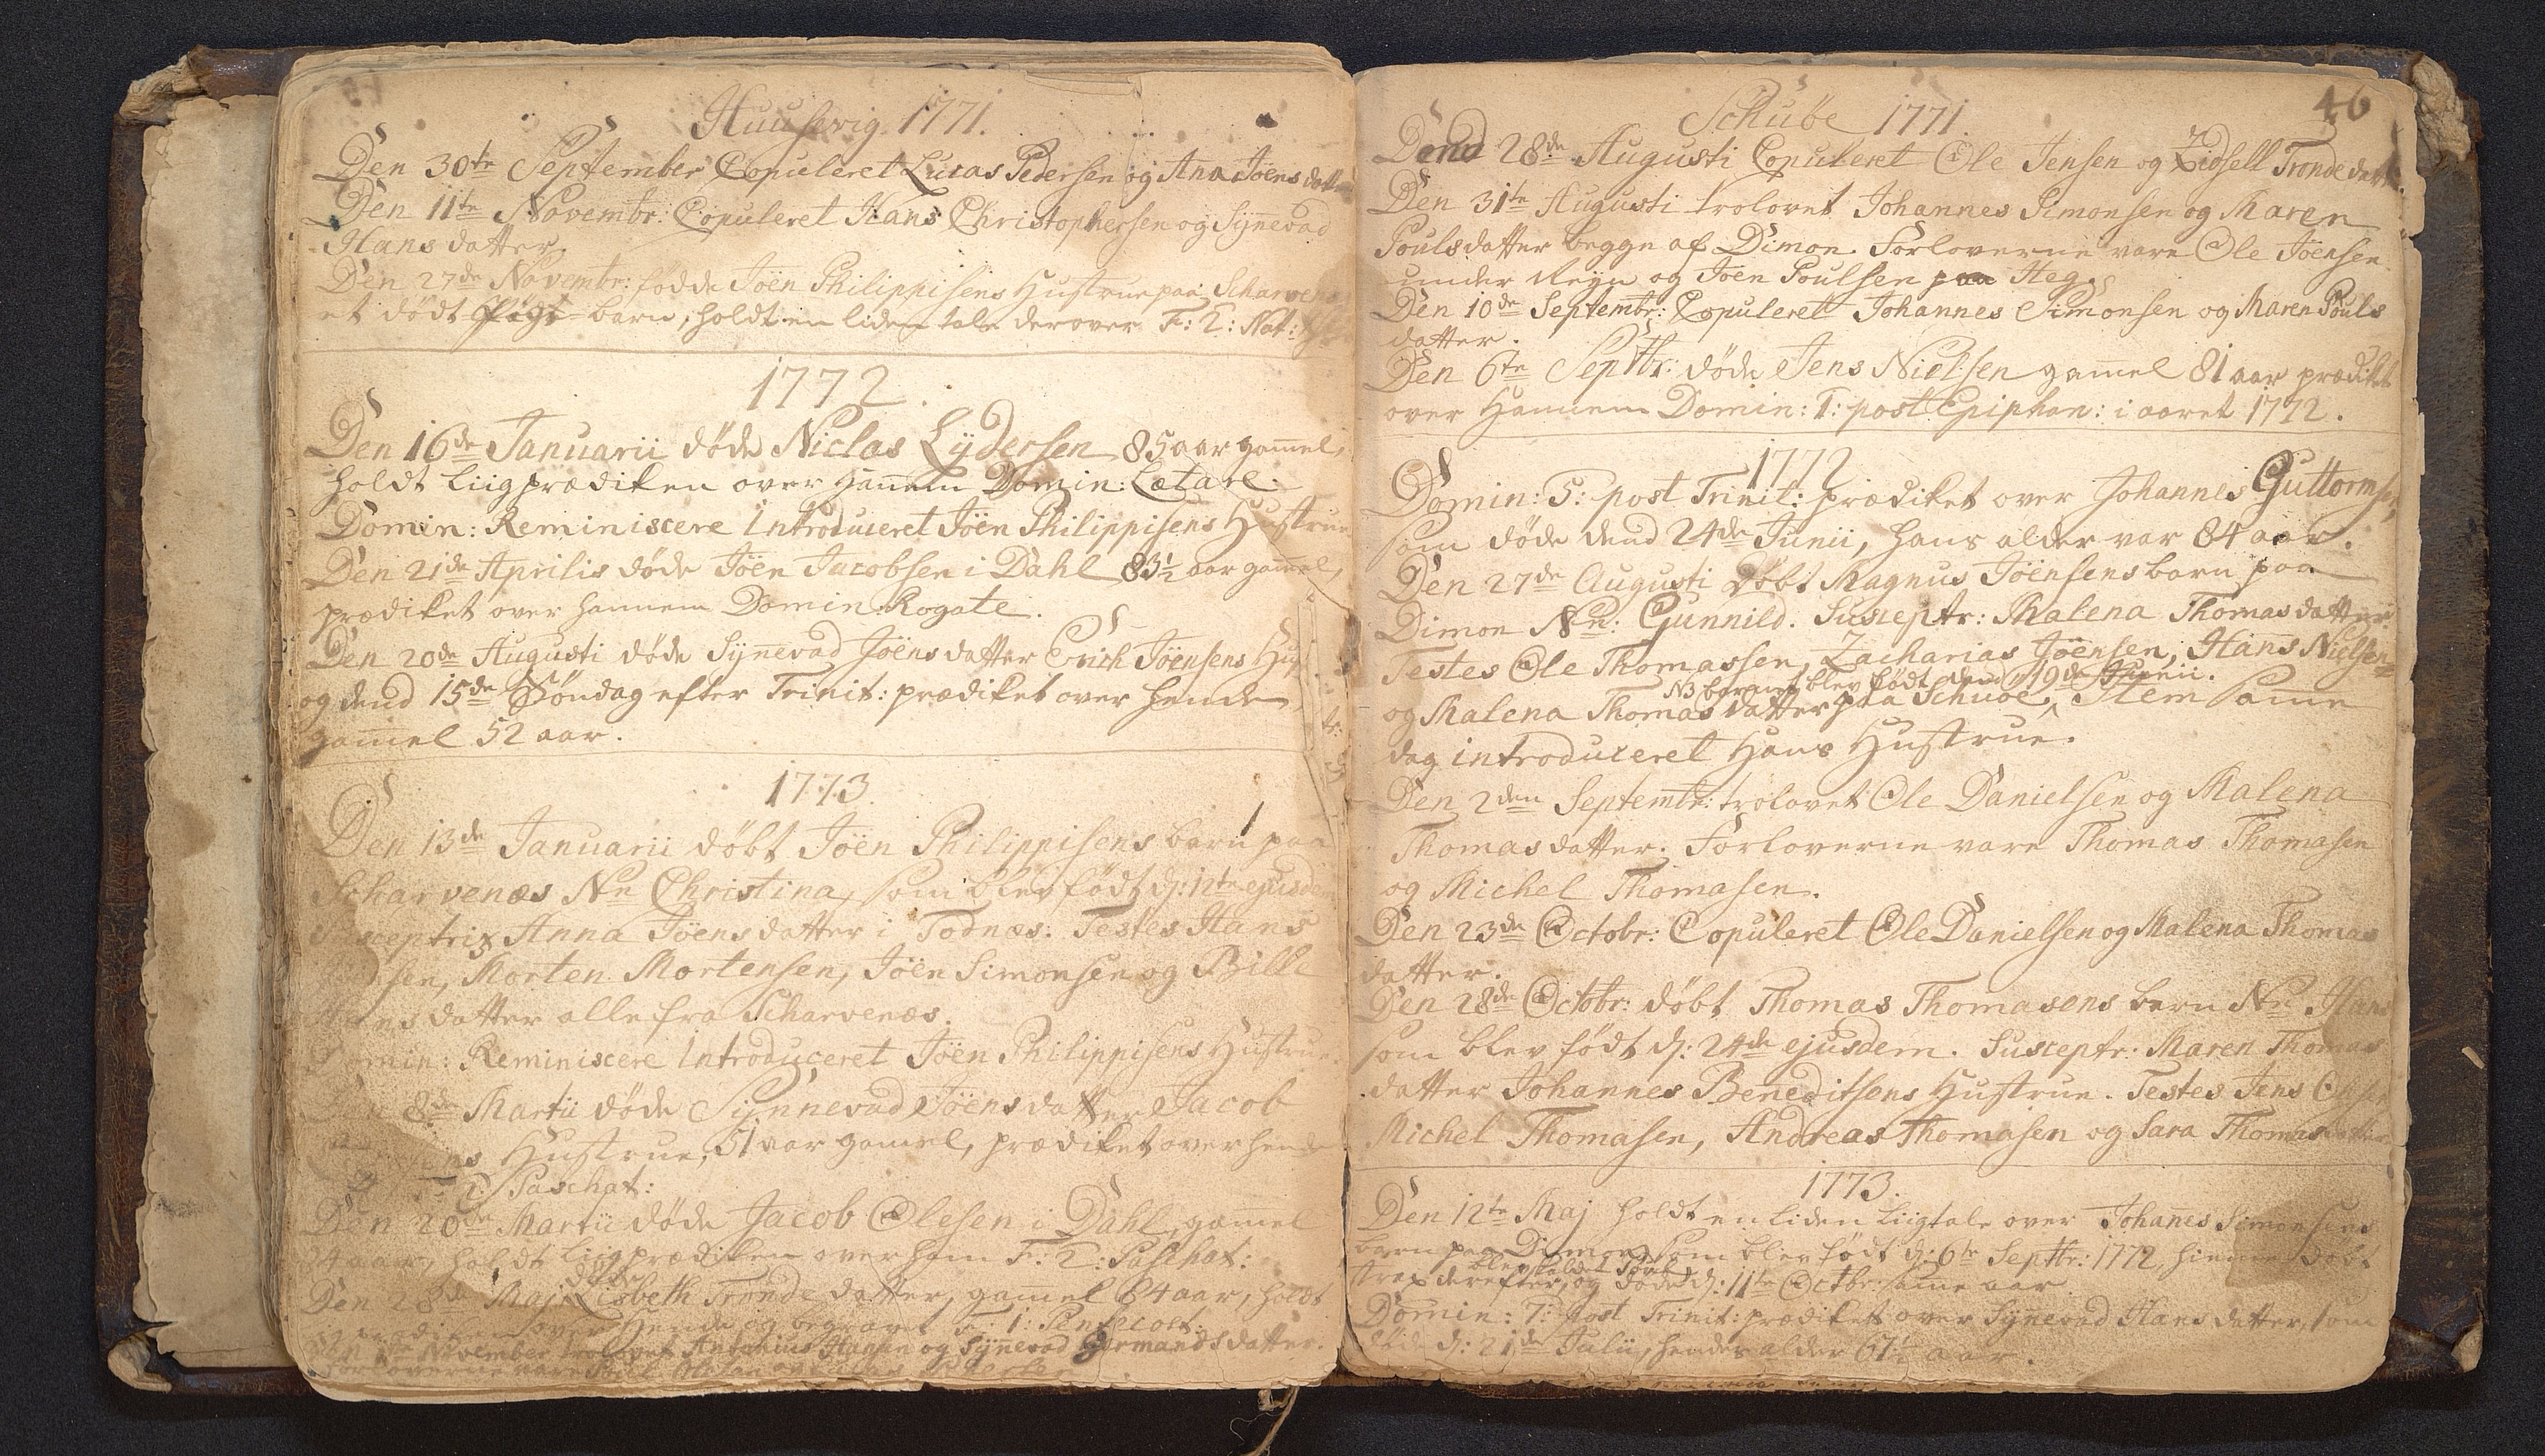 Huusevig 1771.
Den 30te September Copuleret Lucas Pedersen og Ana Jöens datter
Den 11te Novembr: Copuleret Hans Christophersen og Synnevad
Hans datter.
Den 27de Novembr: födde Jöen Philippisens Hustrue paa Scharvenæs
et dödt Pige-barn, holdt en liden tale derover F: 2: Nat:
1772.
Den 16de Januarii döde Niclas Lÿdersen 85 aar gam̄el,
holdt Liigprædiken over Han̄em Domin: Lætare.
Domin: Reminiscere Introduceret Jöen Philippisens Hustrue
Den 21de Aprilis döde Jöen Jacobsen i Dahl 83½ aar gam̄el,
prædiket over hannem Domin: Rogate.
Den 20de Augusti döde Sÿn̄evad Jöens datter Erich Jöensens
og dend 15de Söndag efter Trinit: prædiket over hende
gam̄el 52 aar.
1773.
Den 13de Januarii döbt Jöen Philippisens barn paa
Scharvenæs Nn Christina, som blev födt d: 12te ejusdem
Susceptrix Anna Jöens datter i Todnæs. Testes Hans
Morten Mortensen, Jöen Simonsen og Bille
datter alle fra Scharvenæs.
Domin: Reminiscere Introduceret Jöen Philippisens Hustrue.
Den 8de Martii döde Synnevad Jöens datter Jacob
Hustrue, 51 aar gam̄el, prædiket over hende
2: Paschat:
Den 20de Martii döde Jacob Olesen i Dahl, gam̄el
aar, holdt Liigprædiken over ham F: 2: Paschat:
döde
Den 28de Maj Lisbeth Tronde datter, gam̄el 84 aar, holdt
over Hende og begravet F: 1: Pentecost:
November trolovet Antonius Hansen og Synevad Germands datter.
Forloverne vare
46
Schuöe 1771.
Dend 28de Augusti Copuleret Ole Jensen og Zidsell Tronde datter
Den 31te Augusti trolovet Johannes Simonsen og Maren
Poulsdatter begge af Dimon. Forloverne vare Ole Jöensen
under Reÿn og Jöen Poulsen paa Heg.
Den 10de Septembr: Copuleret Johannes Simonsen og Maren Pouls
datter.
Den 6te Septbr: döde Jens Nielsen gamel 81 aar prædiket
over Hannem Domin: 1: post Epiphan: i aaret 1772.
1772
Domin: 5: post Trinit: prædiket over Johannes Guttormsen,
som döde dend 24de Junii, hans alder var 84 aar.
Den 27de Augusti döbt Magnus Jöensens barn paa
Dimon Nn: Gunnild. Susceptr: Malena Thomas datter.
Testes Ole Thomassen, Zacharias Jöensen, Hans Nielsen
NB barnet blev födt dend 19de Junii.
og Malena Thomas datter paa Schuöe, Item sam̄e
dag introduceret Hans Hustrue.
Den 2den Septembr: trolovet Ole Danielsen og Malena
Thomas datter. Forloverne vare Thomas Thomasen
og Michel Thomasen.
Den 23de Octobr: Copuleret Ole Danielsen og Malena Thomas
datter.
Den 28de Octobr: döbt Thomas Thomasens barn Nn Hans
som blev födt d: 24de ejusdem. Susceptr: Maren Thomas
datter Johannes Beneditsens Hustrue. Testes Jens Olesen
Michel Thomasen, Andreas Thomasen og Sara Thomasdatter
1773.
Den 12te Maj holdt en liden Liigtale over Johan̄es Simonsens
barn paa Dimon, som blev födt d: 6te Septbr: 1772, hiemme döbt
blev kaldet Poul
strax derefter, og döde d: 11te Octbr: sam̄e aar.
Domin: 7: Post Trinit: prædiket over Syn̄evad Hans datter, som
döde d: 21de Julii, hendes alder 67½ aar.